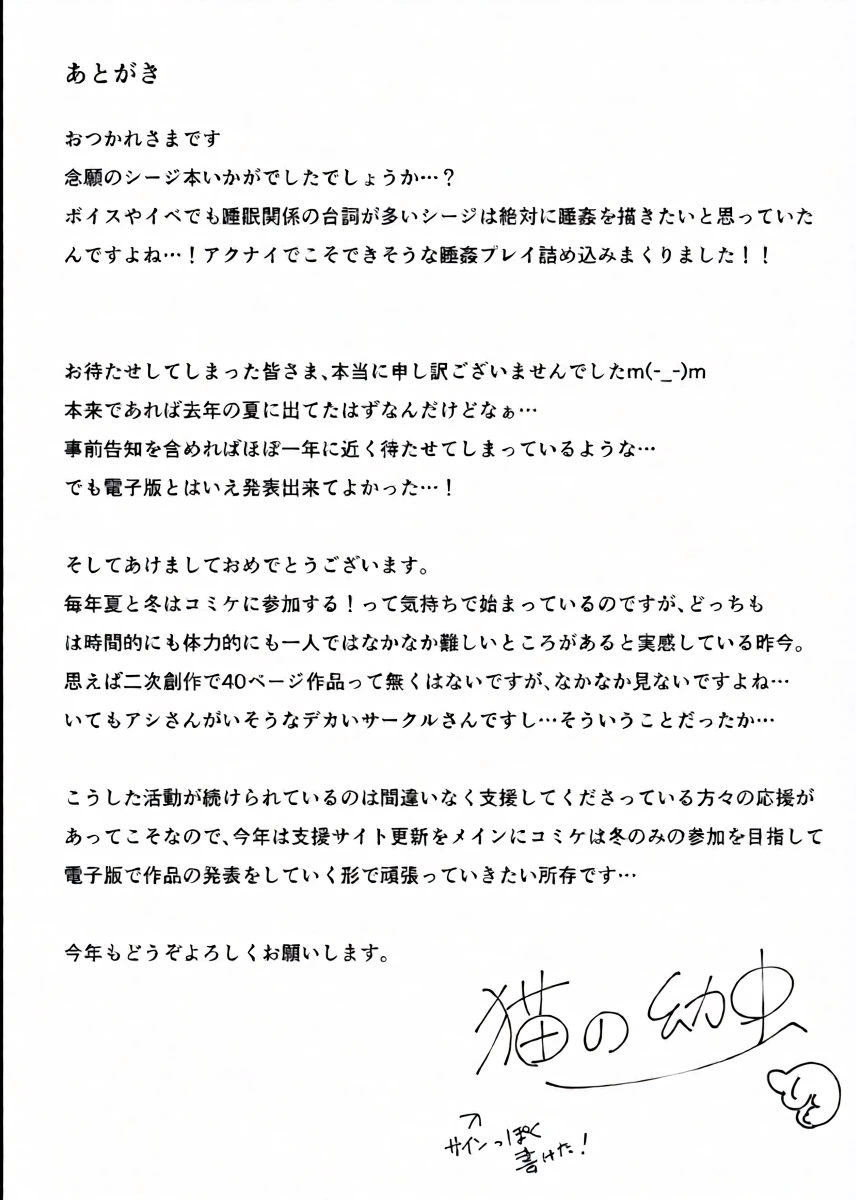 あとがき
おつかれさまです
念願のシージ本いかがでしたでしょうか…？
ボイスやイベでも睡眠関係の台詞が多いシージは絶対に睡姦を描きたいと思っていた
んですよね…！アクナイでこそできそうな睡姦プレイ詰め込みまくりました！！
お待たせしてしまった皆さま、本当に申し訳ございませんでしたm(-_-)m
本来であれば去年の夏に出てたはずなんだけどなぁ…
事前告知を含めればほぼ一年に近く待たせてしまっているような…
でも電子版とはいえ発表出来てよかった…！
そしてあけましておめでとうございます。
毎年夏と冬はコミケに参加する！って気持ちで始まっているのですが、どっちも
は時間的にも体力的にも一人ではなかなか難しいところがあると実感している昨今。
思えば二次創作で40ページ作品って無くはないですが、なかなか見ないですよね…
いてもアシさんがいそうなデカいサークルさんですし…そういうことだったか…
こうした活動が続けられているのは間違いなく支援してくださっている方々の応援が
あってこそなので、今年は支援サイト更新をメインにコミケは冬のみの参加を目指して
電子版で作品の発表をしていく形で頑張っていきたい所存です…
今年もどうぞよろしくお願いします。
猫の幼虫
サインっぽく
書けた！